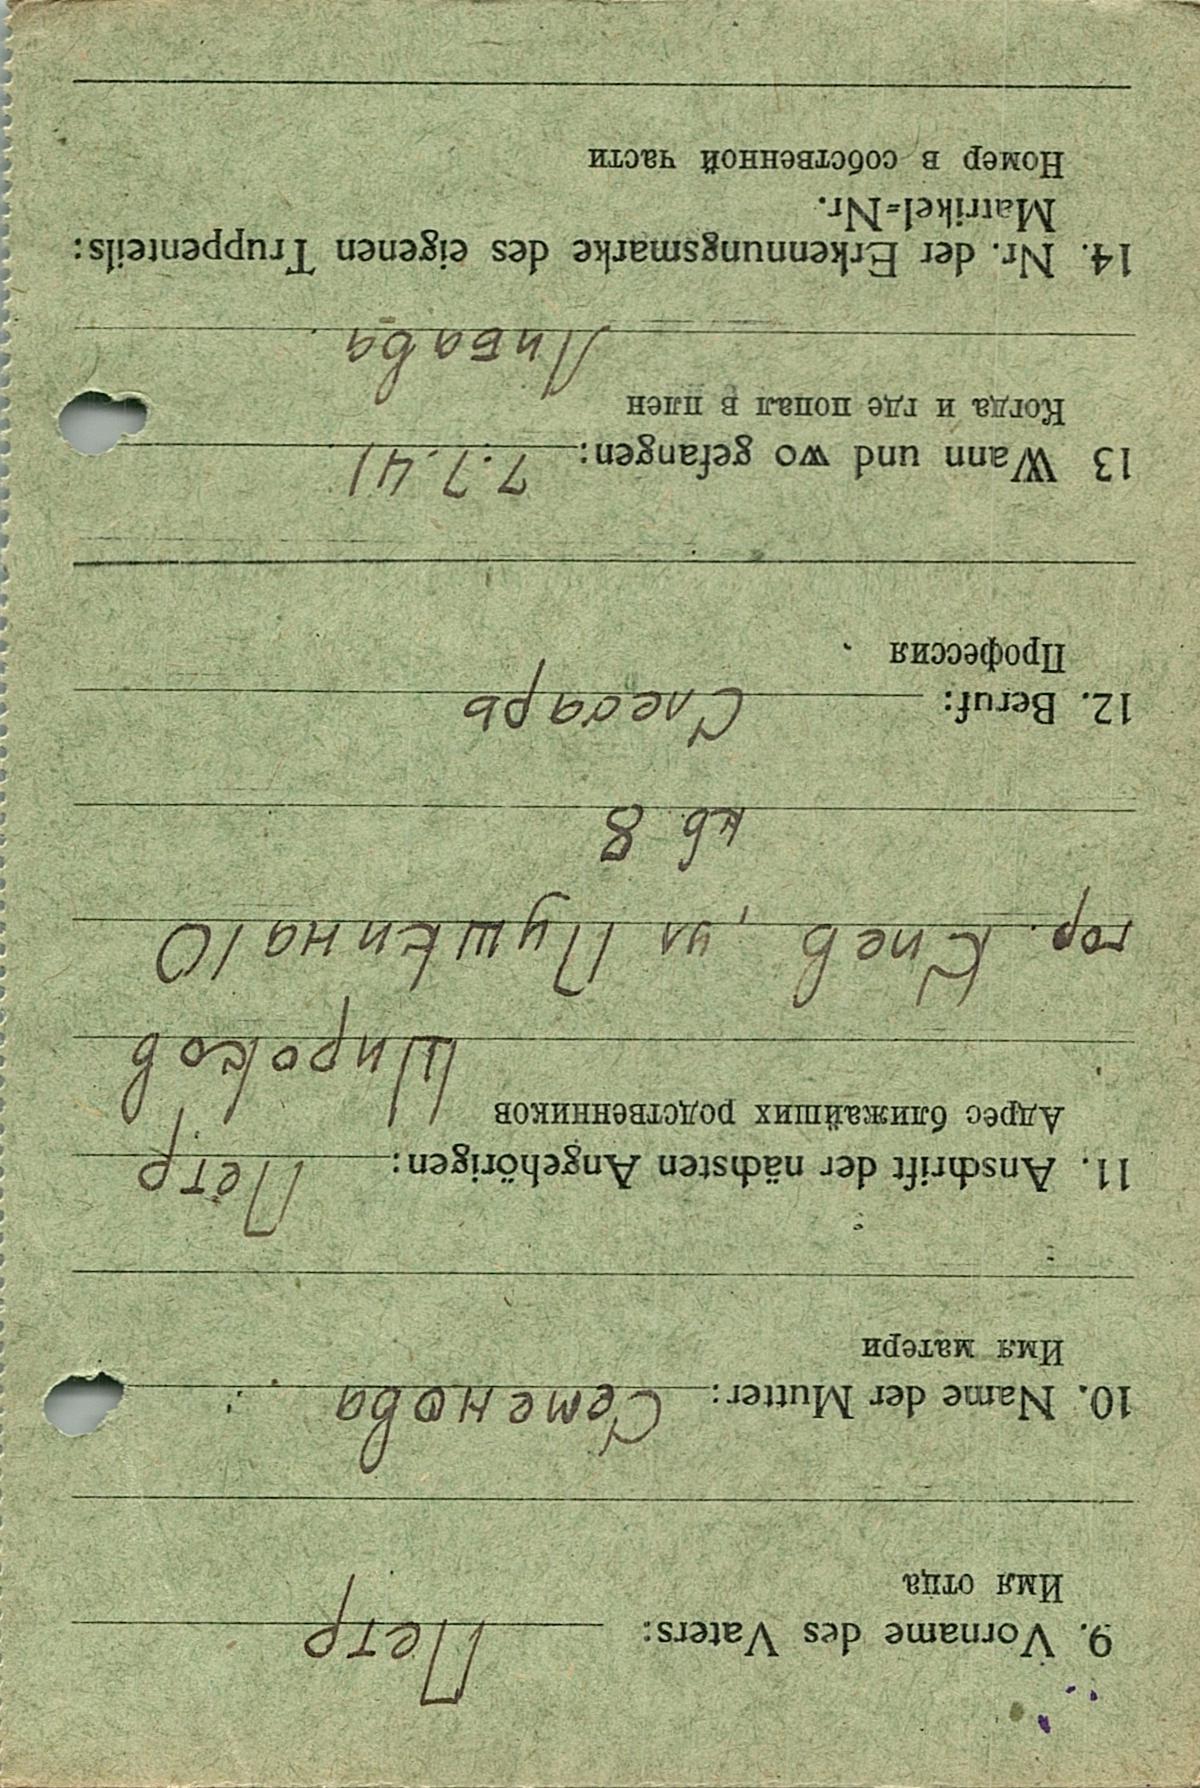 9. Vorname des Vaters: Петр
Имя отца
10. Name der Mutter: Семенова
Имя матери
11. Anschrift der nächsten Angehörigen: Петр
Адрес ближайших родственников
Широков
гор. Киев, ул Пушкина 10
кв 8
12. Beruf: Слесарь
Профессия
13 Wann und wo gefangen: 7.7.41
Когда и где попал в плен
Либава
14. Nr. der Erkennungsmarke des eigenen Truppenteils:
Matrikel=Nr.
Номер в собственной части